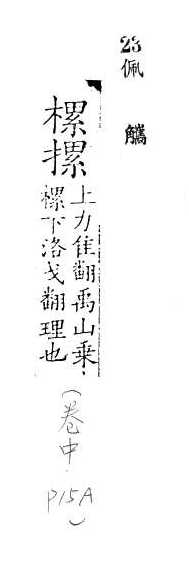 23
佩觿
樏摞
上力隹翻禹山乗
樏下洛戈翻理也
(卷中
P15A)